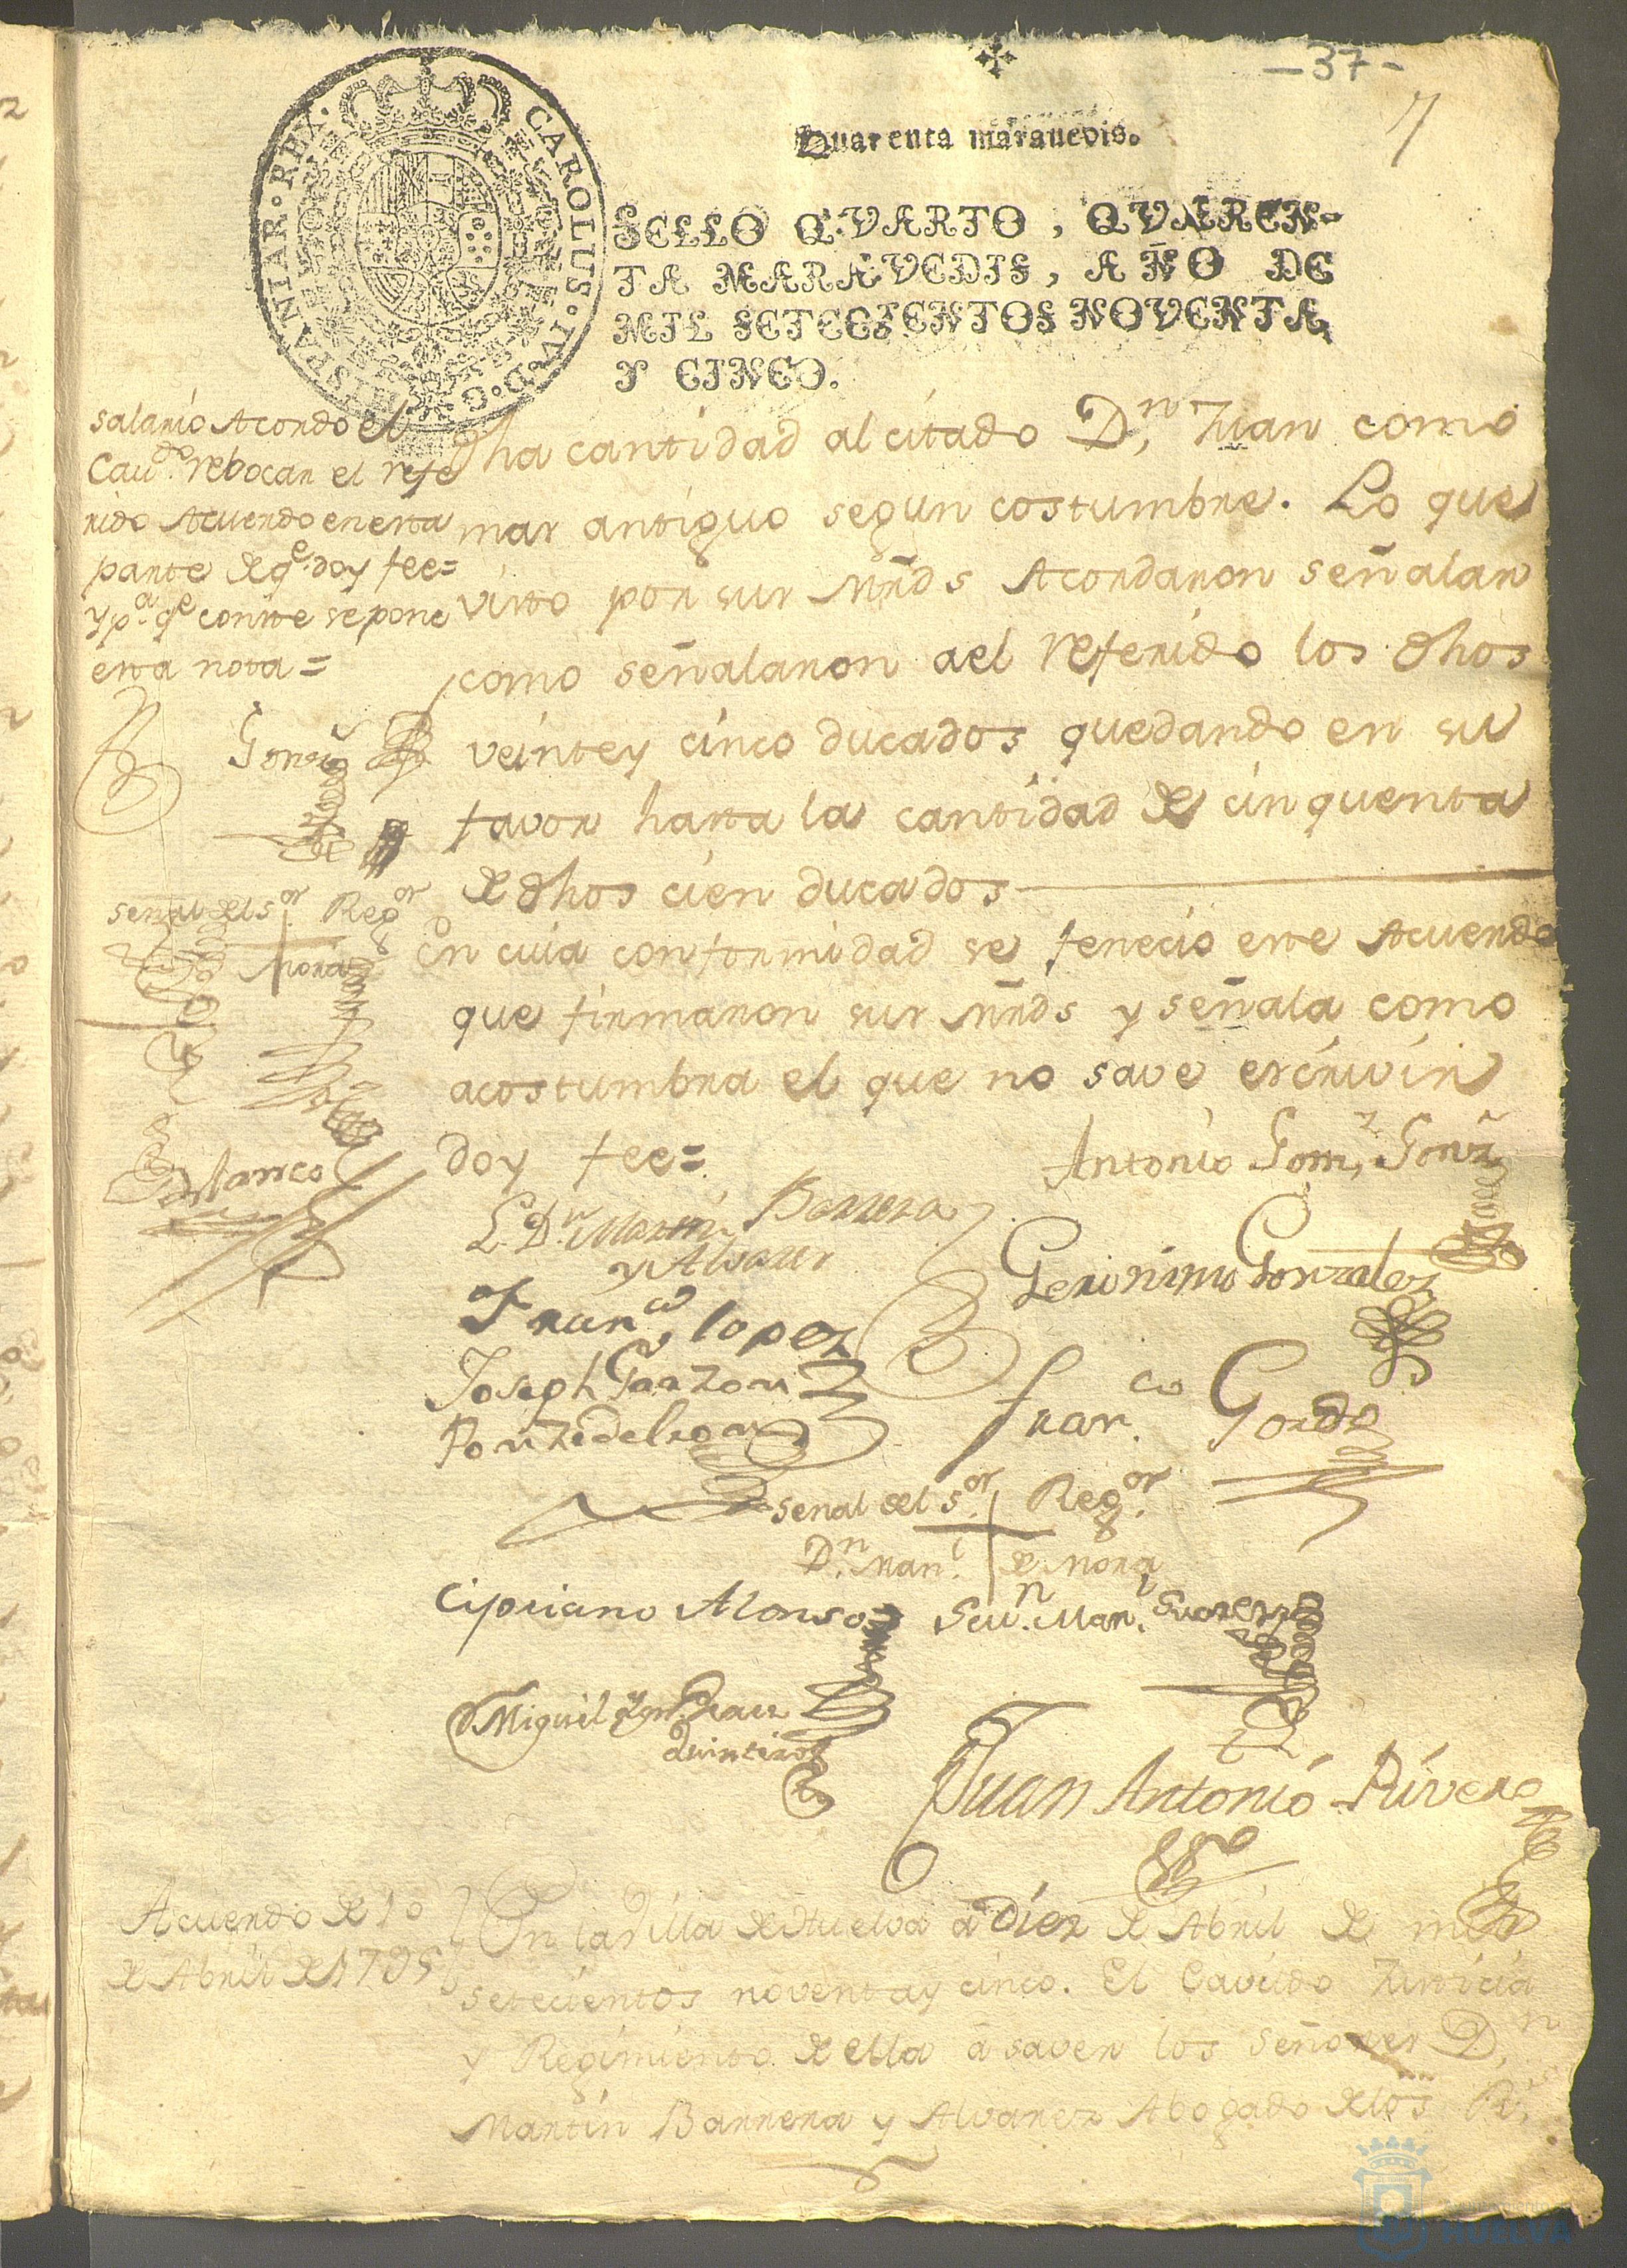 -37-
Quarenta maravedis.
CAROLUS·IV·D·G·HISPANIAR·REX·
SELLO QVARTO, QVAREN-
TA MARAVEDIS, AÑO DE
MIL SETECIENTOS NOVENTA
Y CINCO.
salario Acordo el
Cauᵈᵒ. rebocar el refe
rido Acuerdo en esta
parte de qᵉ. doy fee=
y pᵃ. qᵉ conste se pone
esta nota=
señal del sᵒʳ Regᵒʳ
Mora
Blanco
dha cantidad al citado Dⁿ. Juan como
mas antiguo segun costumbre. Lo que
visto por sus Mr̃ds Acordaron señalar
como señalaron ael referido los dhos
veinte y cinco ducados quedando en su
favor hasta la cantidad de cinquenta
de dhos cien ducados
En cuia conformidad se fenecio este Acuerdo
que firmaron sus Mr̃ds y señala como
acostumbra el que no save escrivir
doy fee=
Antonio Gomᶻ, Gonz
L. Dⁿ. Martin Barrera
y Alvarez
Geronimo Gonzalez
Franᶜᵒ, lopez
Joseph Garzon
Ponze de leon
franᶜᵒ. Gordo
señal del sᵒʳ. Regᵒʳ.
Dⁿ. Manˡ. de Mora
Cipriano Alonso
Sevⁿ. Manˡ. Suarez
Miguel
Quintero
Juan Antonio Rivero
Acuerdo de 10
de Abril de 1795
En la Villa de Huelva a Diez de Abril de mil
setecientos noventa y cinco. El Cavildo Justicia
y Regimiento de ella â saver los Señores Dⁿ.
Martin Barrera y Alvarez Abogado de los Rˢ.
HUELVA